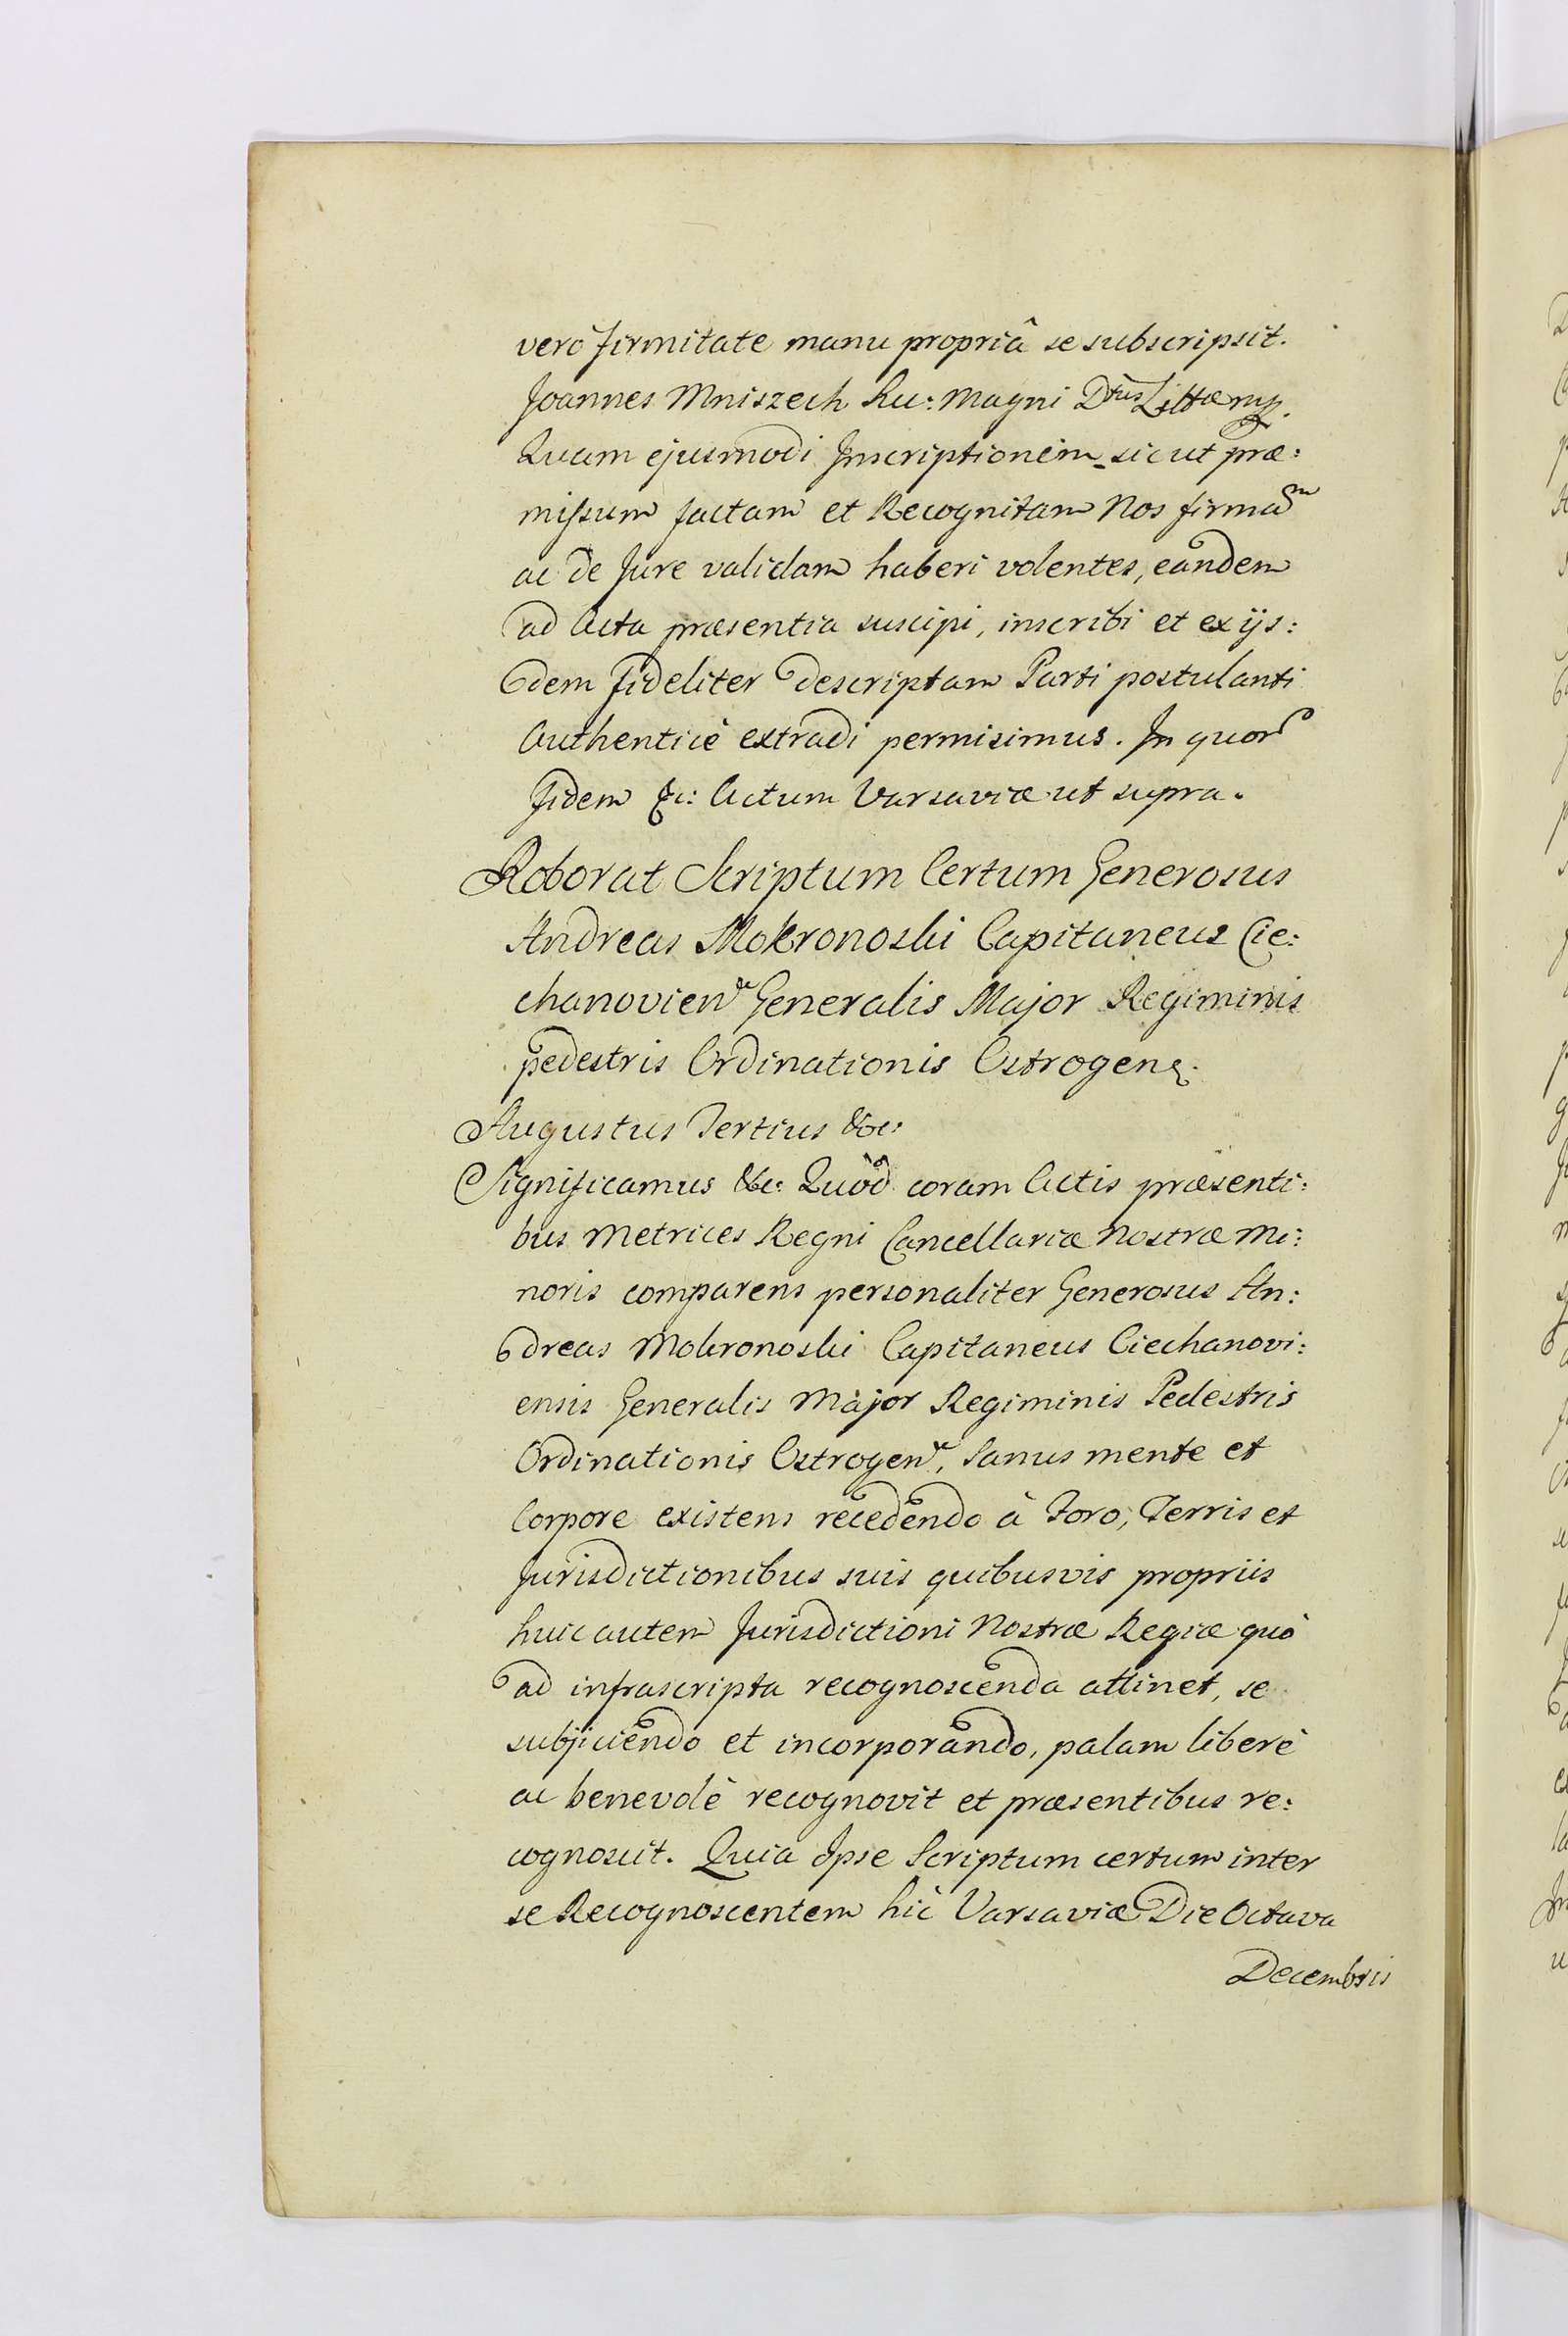 verò firmitate manu propriâ se subscripsit.
Joannes Mniszech Suc: Magni Dtus Littae mp.
Quam ejusmodi Inscriptionem sicut præ:
missum factam et Recognitam Nos firmam
ac de Jure validam haberi volentes, eandem
ad Acta præsentia suscipi, inscribi et ex ijs:
dem fideliter descriptam Parti postulanti
Authenticè extradi permisimus. In quor
fidem &c: Actum Varsaviæ ut supra.
Roborat Scriptum Certum Generosus
Andreas Mokronoski Capitaneus Cie:
chanovien Generalis Major Regiminis
pedestris Ordinationis Ostrogen.
Augustus Tertius &c:
Significamus &c: Quòd coram Actis præsenti:
bus Metrices Regni Cancellariæ Nostræ Mi:
noris comparens personaliter Generosus An:
dreas Mokronoski Capitaneus Ciechanovi:
ensis Generalis Major Regiminis Pedestris
Ordinationis Ostrogen, Sanus mente et
Corpore existens recedendo à Foro, Terris et
Jurisdictionibus suis quibusvis propriis
huic autem Jurisdictioni Nostræ Regiæ quò
ad infrascripta recognoscenda attinet, se
subjiciendo et incorporando, palam liberè
ac benevolè recognovit et præsentibus re:
cognoscit. Quia Ipse Scriptum certum inter
se Recognoscentem hìc Varsaviæ Die Octava
Decembris